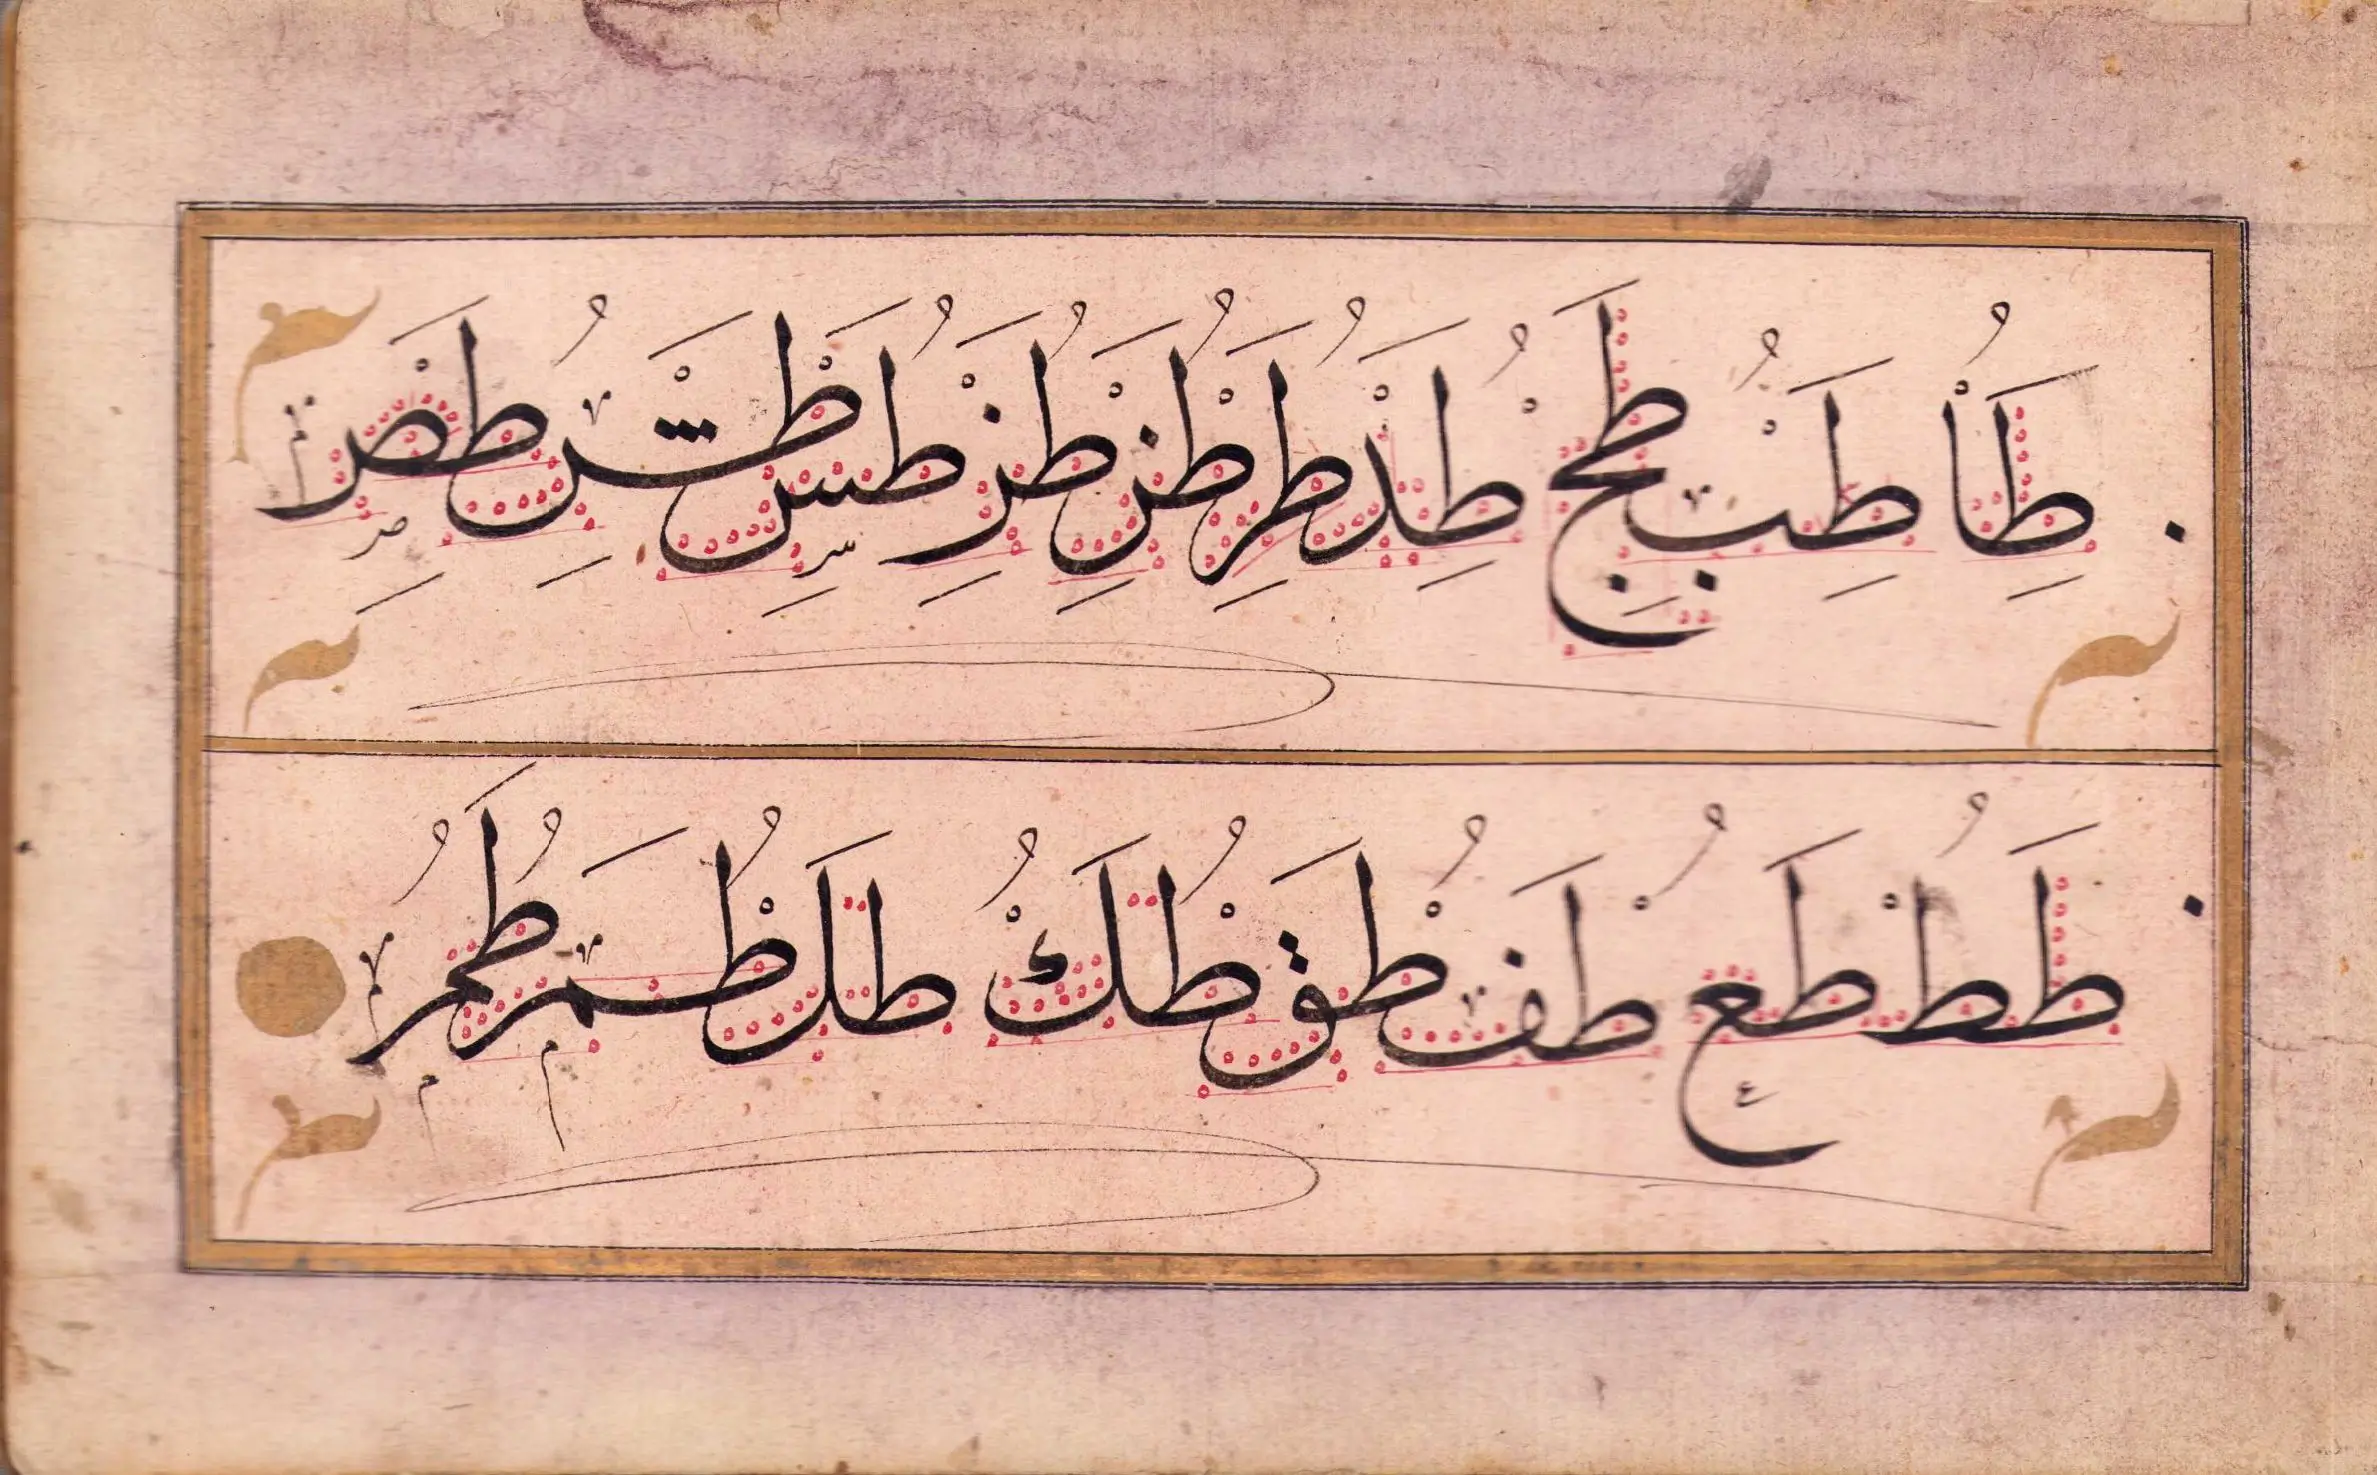 طا طب طج طد طر طز طز طس طش طص
طط طع طف طق طك طل طم طم